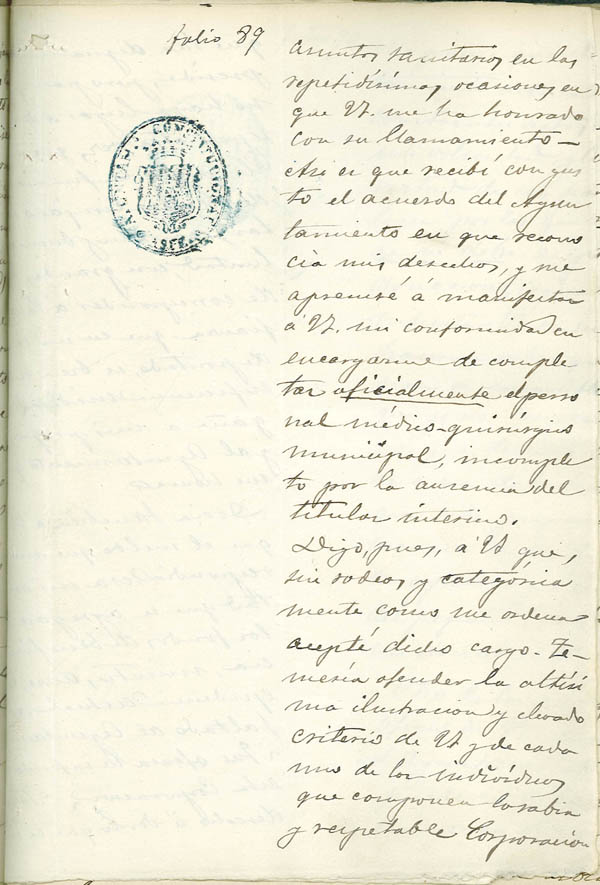 folio 89
asuntos sanitarios en las
repetidísimas ocasiones en
que V. me ha honrado
con su llamamiento—
Asi es que recibí con gus
to el acuerdo del Ayun
tamiento en que recono
cia mis derechos, y me
apresuré á manifestar
á V. mi conformidad en
encargarme de comple
tar oficialmente el perso
nal médico-quirúrgico
municipal, incomple
to por la ausencia del
titular interino.
Digo, pues, a V que,
sin rodeos y categórica
mente como me ordena
acepté dicho cargo. Te-
mería ofender la altísi
ma ilustracion y elevado
criterio de V y de cada
uno de los indivíduos
que componen la sabia
y respetable Corporacion
ALCALDIA CONSTITUCIONAL